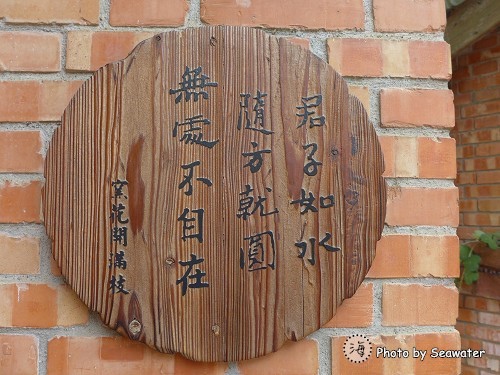 君子如水
隨方就圓
無處不自在
業花開滿枝
海 Photo by Seawater